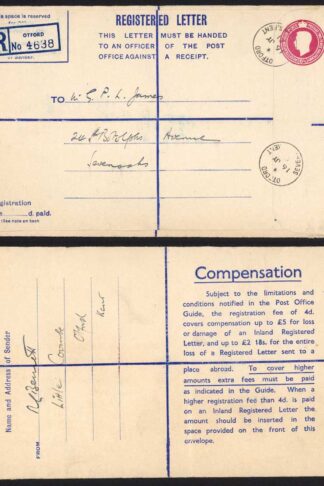 space is reserved
R
OTFORD
No 4638
REGISTERED LETTER
THIS LETTER MUST BE HANDED
TO AN OFFICER OF THE POST
OFFICE AGAINST A RECEIPT.
OTFORD
TO
G. P. L. James
24 St Botolphs Avenue
Sevenoaks
OTFORD
egistration
d. paid.
(See note on back
Name and Address of Sender
FROM
Bennett
Little Coombe
Otford
Kent
Compensation
Subject to the limitations and
conditions notified in the Post Office
Guide, the registration fee of 4d.
covers compensation up to £5 for loss
or damage of an Inland Registered
Letter, and up to £2 18s. for the entire
loss of a Registered Letter sent to a
place abroad. To cover higher
amounts extra fees must be paid
as indicated in the Guide. When a
higher registration fee than 4d. is
paid on an Inland Registered Letter the
amount should be inserted in the
space provided on the front of this
envelope.